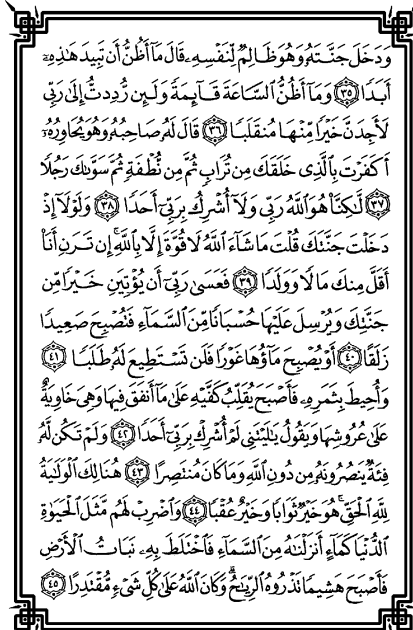 وَدَخَلَ جَنَّتَهُۥ وَهُوَ ظَالِمٌ لِّنَفْسِهِۦ قَالَ مَآ أَظُنُّ أَن تَبِيدَ هَٰذِهِۦٓ
أَبَدًا ﴿٣٥﴾ وَمَآ أَظُنُّ ٱلسَّاعَةَ قَآئِمَةً وَلَئِن رُّدِدتُّ إِلَىٰ رَبِّى
لَأَجِدَنَّ خَيْرًا مِّنْهَا مُنقَلَبًا ﴿٣٦﴾ قَالَ لَهُۥ صَاحِبُهُۥ وَهُوَ يُحَاوِرُهُۥٓ
أَكَفَرْتَ بِٱلَّذِى خَلَقَكَ مِن تُرَابٍ ثُمَّ مِن نُّطْفَةٍ ثُمَّ سَوَّىٰكَ رَجُلًا
﴿٣٧﴾ لَّٰكِنَّا۠ هُوَ ٱللَّهُ رَبِّى وَلَآ أُشْرِكُ بِرَبِّىٓ أَحَدًا ﴿٣٨﴾ وَلَوْلَآ إِذْ
دَخَلْتَ جَنَّتَكَ قُلْتَ مَا شَآءَ ٱللَّهُ لَا قُوَّةَ إِلَّا بِٱللَّهِ ۚ إِن تَرَنِ أَنَا۠
أَقَلَّ مِنكَ مَالًا وَوَلَدًا ﴿٣٩﴾ فَعَسَىٰ رَبِّىٓ أَن يُؤْتِيَنِ خَيْرًا مِّن
جَنَّتِكَ وَيُرْسِلَ عَلَيْهَا حُسْبَانًا مِّنَ ٱلسَّمَآءِ فَتُصْبِحَ صَعِيدًا
زَلَقًا ﴿٤٠﴾ أَوْ يُصْبِحَ مَآؤُهَا غَوْرًا فَلَن تَسْتَطِيعَ لَهُۥ طَلَبًا ﴿٤١﴾
وَأُحِيطَ بِثَمَرِهِۦ فَأَصْبَحَ يُقَلِّبُ كَفَّيْهِ عَلَىٰ مَآ أَنفَقَ فِيهَا وَهِىَ خَاوِيَةٌ
عَلَىٰ عُرُوشِهَا وَيَقُولُ يَٰلَيْتَنِى لَمْ أُشْرِكْ بِرَبِّىٓ أَحَدًا ﴿٤٢﴾ وَلَمْ تَكُن لَّهُۥ
فِئَةٌ يَنصُرُونَهُۥ مِن دُونِ ٱللَّهِ وَمَا كَانَ مُنتَصِرًا ﴿٤٣﴾ هُنَالِكَ ٱلْوَلَٰيَةُ
لِلَّهِ ٱلْحَقِّ ۚ هُوَ خَيْرٌ ثَوَابًا وَخَيْرٌ عُقْبًا ﴿٤٤﴾ وَٱضْرِبْ لَهُم مَّثَلَ ٱلْحَيَوٰةِ
ٱلدُّنْيَا كَمَآءٍ أَنزَلْنَٰهُ مِنَ ٱلسَّمَآءِ فَٱخْتَلَطَ بِهِۦ نَبَاتُ ٱلْأَرْضِ
فَأَصْبَحَ هَشِيمًا تَذْرُوهُ ٱلرِّيَٰحُ ۗ وَكَانَ ٱللَّهُ عَلَىٰ كُلِّ شَىْءٍ مُّقْتَدِرًا ﴿٤٥﴾